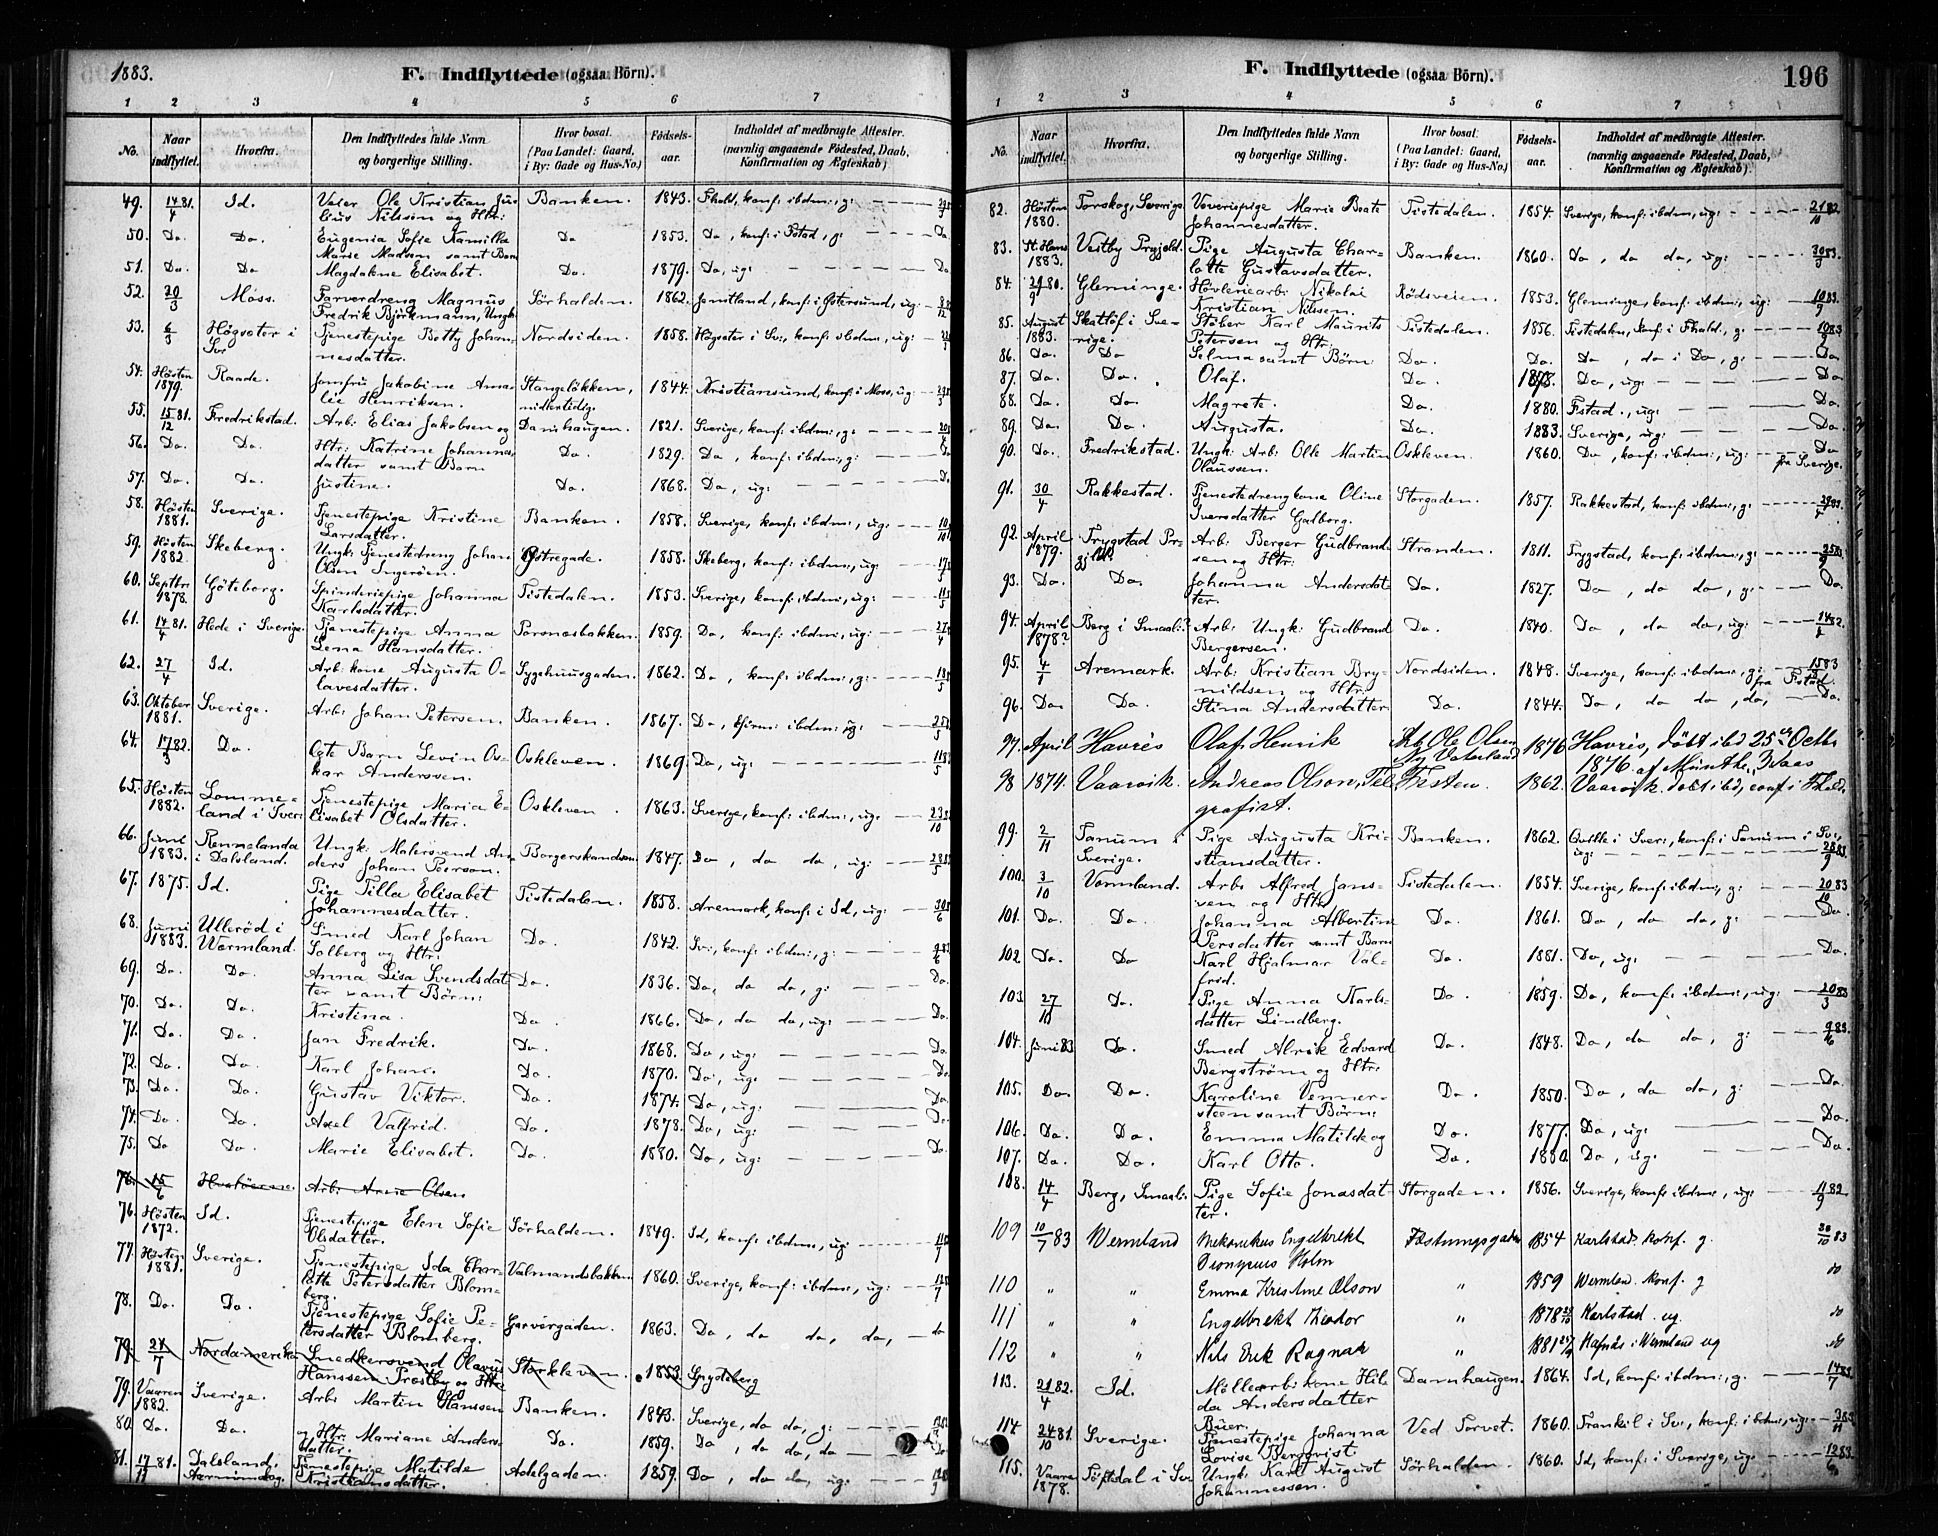 1883.
F. Indflyttede (ogsaa Börn).
1 2 3 4 5 6 7
No. Naar indflyttet. Hvorfra. Den Indflyttedes fulde Navn og borgerlige Stilling. Hvor bosat. (Paa Landet: Gaard, i By: Gade og Hus-No.) Födsels-aar. Indholdet af medbragte Attester. (navnlig angaaende Födested, Daab, Konfirmation og Ægteskab).
49. 14/4 81. Id. Ole Kristian Ju-
lius Nilsen og Htr: Banken. 1843. Fhald, konf: ibdm:, g:
50. Do. Do. Eugenia Sofie Kamilla
Marie Madsen samt Barn Do 1853. Do, konf: i Fstad, g: Do
51. Do. Do Magdalene Elisabet. Do. 1879. Do, ug: Do
52. 20/3 Moss. Farverdreng Magnus
Fredrik Bjørkmann, Ungk: Sørhalden. 1862. Jemtland, konf: i Østersund, ug:
53. 6/3 Høgsäter i
Sv: Tjenestepige Betty Johan-
nesdatter. Nordsiden. 1858. Høgsäter i Sv:, konf: ibdm:, ug:
54. Høsten
1879. Raade. Jomfru Jakobine Ama-
lie Henriksen. Stangeløkken,
midlertidig. 1844. Kristiansund, konf: i Moss, ug:
55. 15/12 81. Fredrikstad. Arb: Elias Jakobsen og Damhaugen. 1821. Sverige, konf: ibdm:, g:
56. Do. Do. Htr: Katrine Johannes-
datter samt Barn Do. 1829. Do, konf: ibdm:, g: Do
57. Do. Do. Justine. Do. 1868. Do, ug: Do
58. Høsten
1881. Sverige. Tjenestepige Kristine
Larsdatter. Banken. 1858. Sverige, konf: ibdm:, ug:
59. Høsten
1882 Skeberg. Ungk: Tjenestedreng Johan
Olsen Ingerøen. Østregade. 1858. Skeberg, konf: ibdm:, ug:
60. Septbr:
1878. Göteborg. Spinderipige Johanna
Karlsdatter. Tistedalen. 1853. Sverige, konf: ibdm:, ug:
61. 14/4 81. Hede i Sverige. Tjenestepige Anna
Lena Hansdatter. Porsnesbakken. 1859. Do, konf: ibdm:, ug:
62. 27/4 Id. Arb: kone Augusta O-
lavesdatter. Sygehuusgaden. 1862. Do, konf: ibdm:, g:
63. Oktober
1881. Sverige. Arb: Johan Petersen. Banken. 1867. Do, ibdm: ug:
64. 17/3 82. Do. Ogte Barn Levin Os-
kar Anderssen. Oskleven. 1869. Do, ug:
65. Høsten
1882. Somme-
land i Sver: Tjenestepige Maria E-
lisabet Olsdatter. Oskleven. 1863. Sverige, konf: ibdm:, ug:
66. Juni
1883. Rennelanda
i Dalsland. Ungk: Malersvend An-
ders Johan Peerson. Borgerskandsen. 1847. Do, do do, ug:
67. 1875. Id. Pige Tilla Elisabet
Johannesdatter. Tistedalen. 1858. Aremark, konf: i Id, ug:
68. Juni
1883. Ullerød i
Wermland. Smed Karl Johan
Solberg og Htr: Do. 1842. Sv:, konf: ibdm:, g:
69. Do. Do. Anna Lisa Svendsdat-
ter samt Børn: Do. 1836. Do, do do, g: Do.
70. Do. Do. Kristina. Do. 1866. Do, do do, ug: Do.
71. Do. Do. Jan Fredrik. Do. 1868. Do, ug: Do.
72. Do. Do. Karl Johan. Do. 1870. Do, ug: Do.
73. Do. Do. Gustav Viktor. Do. 1874. Do, ug: Do.
74. Do. Do. Axel Valfrid. Do. 1878. Do, ug: Do.
75. Do Do. Marie Elisabet. Do. 1880. Do, ug: Do.
76. 15/6 Arb: Arne Olsen
76. Høsten
1872. Id. Tjenestepige Elen Sofie
Olsdatter. Sørhalden. 1849. Id, konf: ibdm:, ug:
77. Høsten
1881. Sverige. Tjenestepige Ida Char-
lotte Petersdatter Blom-
berg. Valmandsbakken 1860. Sverige, konf: ibdm:, ug:
78. Do. Do. Tjenestepige Sofie Pe-
tersdatter Blomberg. Garvergaden. 1863. Do, do do, do, do
79. 27/7 Nordamerika Smedkersvend Olavus
Hanssen Prestby og Htr: Storkleven. 1853. Spydeberg
79. Vaaren
1882. Sverige. Arb: Martin Hanssen Banken. 1843. Sverige, do do, g:
80. Do. Do. og Htr: Mariane Anders-
datter. Do. 1859. Do, do do, do Do
81. 17/11 81. Dalsland,
Aarnimskog. Tjenestepige Matilde
Kristiansdatter. Adelgaden. 1859. Do, do do, ug:
F. Indflyttede (ogsaa Börn).
196
1 2 3 4 5 6 7
No. Naar indflyttet. Hvorfra. Den Indflyttedes fulde Navn og borgerlige Stilling. Hvor bosat. (Paa Landet: Gaard, i By: Gade og Hus-No.) Födsels-aar. Indholdet af medbragte Attester. (navnlig angaaende Födested, Daab, Konfirmation og Ægteskab).
82. Høsten
1880. Torskog, Sverige Væveripige Marie Beate
Johannesdatter. Tistedalen. 1854. Sverige, konf: ibdm:, ug: 21/10 82
83. St. Hans
1883. Vestby Prgjeld. Pige Augusta Char-
lotte Gustavsdatter. Banken. 1860. Do, do do, ug: 30/9 83.
84. 29/9 80. Glemminge. Høvleriearb: Nikolai
Kristian Nilsen. Rödsveien. 1853. Glemminge, konf: ibdm:, ug: 10/9 83.
85. August
1883. Skatlöf i Sve-
rige. Støber Karl Maurits
Petersen og Htr: Tistedalen. 1856. Tistedalen, konf: i Fhald, g: 10/9 83
86. Do. Do Selma samt Børn: Do. Do. Do, do i Do, g: Do.
87. Do. Do. Olaf. Do. 1878. Do, ug: Do.
88. Do. Do. Magrete. Do. 1880. Fstad., ug: Do.
89. Do. Do. Augusta. Do. 1883. Sverige, ug: Do.
90. Do. Fredrikstad. Ungk: Arb: Olle Martin
Olaussen. Oskleven. 1860. Do, konf: ibdm:, ug: Do
fra Sverige.
91. 30/4 Rakkestad. Tjenestedrengkone Oline
Iversdatter Galborg. Storgaden. 1857. Rakkestad, konf: ibdm:, g:
92. April
1879. Trygstad Pr-
gjld: Arb: Berger Gudbrand-
sen og Htr: Stranden. 1811. Trygstad, konf: ibdm:, g:
93. Do. Do. Johanna Andersdat-
ter. Do. 1827. Do, do do, g: Do.
94. April
1878? Berg i Smaal:? Arb: Ungk: Gudbrand
Bergersen. Do. 1840. Do, do do, ug:
95. 4/5 Aremark. Arb: Kristian Bry-
nildsen og Htr: Nordsiden. 1848. Sverige, konf: ibdm:, g:
fra Fstad.
96. Do. Do. Stina Andersdatter Do. 1844. Do, do do, do, Do.
97. April Havrés Olaf Henrik Arb: Ole Olsen
Ny Vaterland 1876 Havrés, døbt ibd 25de Octb:
1876 af Münthe, Waas
98 1874. Vaarvik. Andreas Olsen, Tele-
grafist. Tisten. 1862. Vaarvik. døbt ibd, conf: i Fhald.
99. 2/11 Tanum i
Sverige. Pige Augusta Kri-
stiansdatter. Banken. 1862. Qville i Sver:, konf: i Tanum i Sv:,
ug: 28/9 83.
100. 3/10 Vermland. Arb: Alfred Jans-
sen og Htr: Tistedalen. 1854. Sverige, konf: ibdm:, g: 20/10 83
101. Do. Do. Johanna Albertine
Persdatter samt Barn Do. 1861. Do, do do, g: Do.
102 Do. Do Karl Hjalmar Val-
frid. Do. 1881. Do, ug: Do.
103. 27/10 Do. Pige Anna Karls-
datter Lindberg. Do. 1859. Do, konf: ibdm:, ug: 20/3 83
104. Juni 83 Do. Smed Alrik Edvard
Bergstrøm og Htr: Do. 1848. Do, do do, g: 9/6 83.
105. Do. Do. Karoline Venner-
steen samt Børn: Do. 1850. Do, do do, g: Do
106. Do. Do. Emma Matilde og Do. 1877. Do, ug: Do.
107. Do. Do. Karl Otto. Do. 1880. Do, ug: Do.
108. 14/4 Berg, Smaal: Pige Sofie Jonasdat-
ter. Storgaden. 1856. Sverige, konf: ibdm:, ug: 11/9 82
109 10/7 83 Wermland Mekanikus Engelbrekt
Dionysius Holm Fæstningsgaden 1854 Karlstad konf. g. 30/10 83
110 " " Emma Kristine Olson 1859 Wermlan. konf. g do
111 " " Engelbrekt Theodor " 1878 Karlstad. ug. do
112 " " Nils Erik Ragnar " 1881 i Wermland ug do
113. 21/4 82. Id. Møllearb: kone Hil-
da Andersdatter
Büer. Damhaugen. 1864. Id, konf: ibdm:, g: 14/7 83.
114 24/10 81. Sverige. Tjenestepige Johanna
Lovise Bergqvist. Ved Torvet. 1860. Frankil i Sv:, konf: ibdm:, ug:
115. Vaaren
1878. Töftdal i Sv: Ungk: Karl August
Johannessen. Sørhalden. 1860. Id, konf: i Sverige, ug: